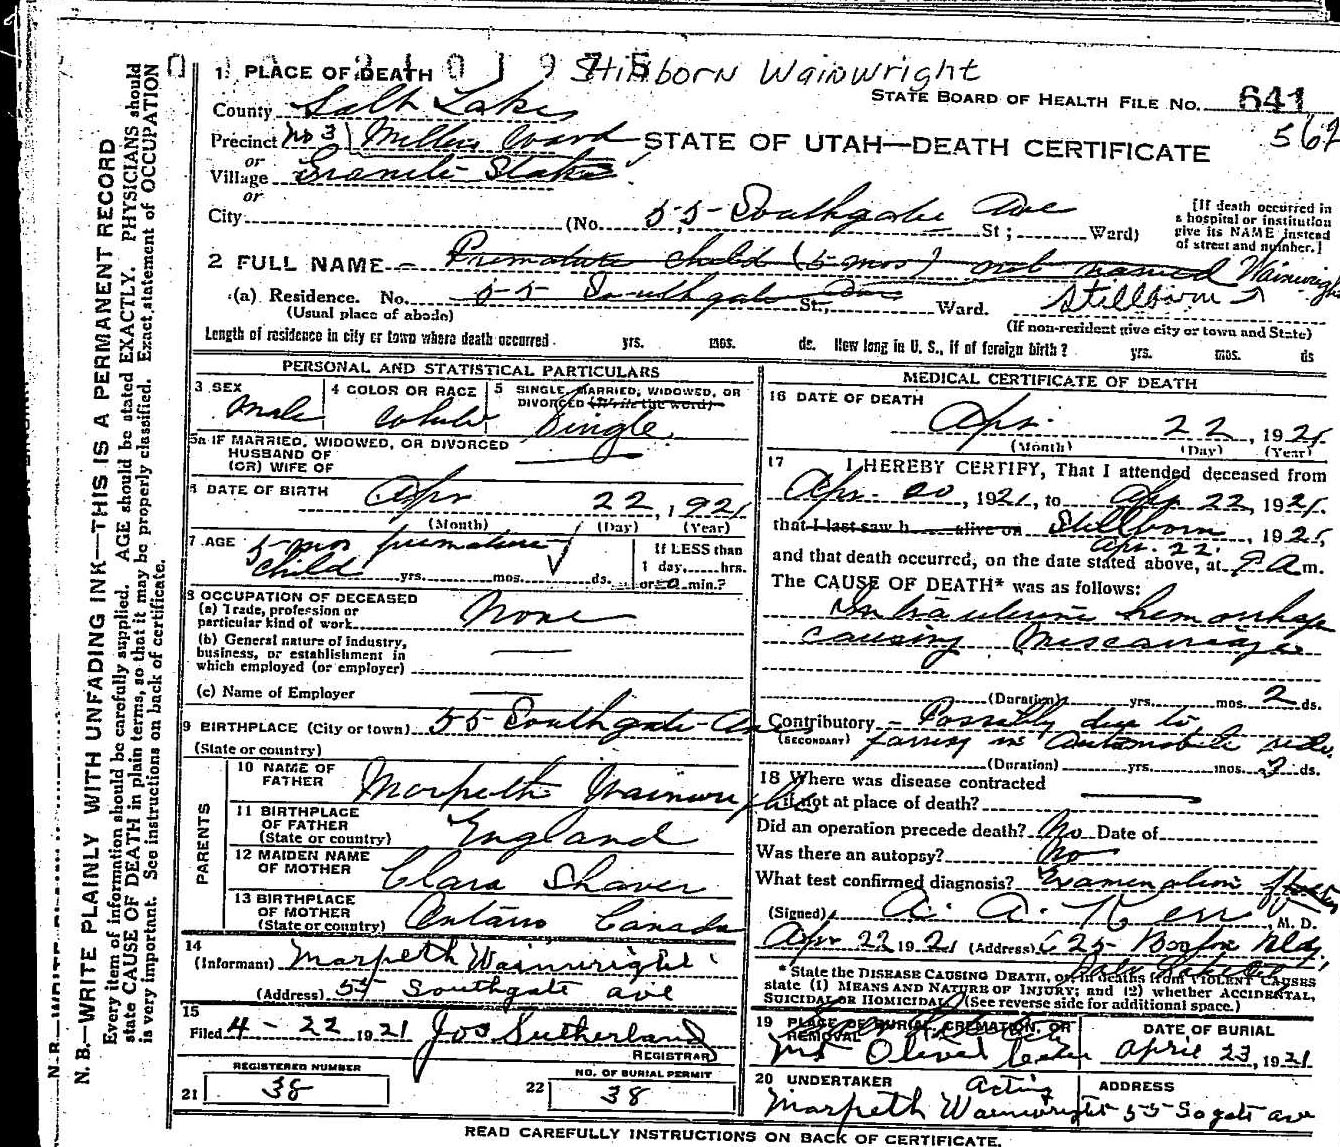 Stillborn Wainwright
1. PLACE OF DEATH
STATE BOARD OF HEALTH FILE NO. 641
County Salt Lake
562
Precinct No 3 Millers Ward STATE OF UTAH—DEATH CERTIFICATE
or
Village Granite Stake
or
City (No. 55 Southgate Ave St; Ward)
[If death occurred in
a hospital or institution
give its NAME instead
of street and number.]
2 FULL NAME Premature child (5 mos) not named Wainwright
Stillborn
(a) Residence. No. 55 Southgate Ave St., Ward.
(Usual place of abode)
(If non-resident give city or town and State)
Length of residence in city or town where death occurred yrs. mos. ds. How long in U. S., if of foreign birth? yrs. mos. ds
PERSONAL AND STATISTICAL PARTICULARS
3 SEX
Male
4 COLOR OR RACE
White
5 SINGLE, MARRIED, WIDOWED, OR
DIVORCED (Write the word)
Single
5a IF MARRIED, WIDOWED, OR DIVORCED
HUSBAND OF
(OR) WIFE OF
DATE OF BIRTH
Apr 22, 1921
(Month) (Day) (Year)
7 AGE
5 mos premature
child
yrs. mos. ds.
If LESS than
1 day, hrs.
or 0 min.?
8 OCCUPATION OF DECEASED
(a) Trade, profession or
particular kind of work None
(b) General nature of industry,
business, or establishment in
which employed (or employer)
(c) Name of Employer
9 BIRTHPLACE (City or town) 55 Southgate Ave
(State or country)
PARENTS
10 NAME OF
FATHER Marpeth Wainwright
11 BIRTHPLACE
OF FATHER
(State or country) England
12 MAIDEN NAME
OF MOTHER Clara Shaver
13 BIRTHPLACE
OF MOTHER
(State or country) Ontario Canada
14
(Informant) Marpeth Wainwright
(Address) 55 Southgate ave
15
Filed 4-22 1921 Jos Sutherland
REGISTRAR
REGISTERED NUMBER
21 38
NO. OF BURIAL PERMIT
22 38
MEDICAL CERTIFICATE OF DEATH
16 DATE OF DEATH
Apr. 22, 1921
(Month) (Day) (Year)
17 I HEREBY CERTIFY, That I attended deceased from
Apr. 20, 1921, to Apr 22, 1921.
that I last saw h alive on Stillborn, 1921,
Apr. 22.
and that death occurred, on the date stated above, at 9 a m.
The CAUSE OF DEATH* was as follows:
Intrauterine hemorrhage
causing Miscarriage
(Duration) yrs. mos. 2 ds.
Contributory Possibly due to
(SECONDARY) jarring in Automobile ride.
(Duration) yrs. mos. 2 ds.
18 Where was disease contracted
if not at place of death?
Did an operation precede death? No Date of
Was there an autopsy? No
What test confirmed diagnosis? Examination
(Signed) A. A. Kerr M. D.
Apr 22 1921 (Address) 625 Boston Bldg,
* State the DISEASE CAUSING DEATH, or in deaths from VIOLENT CAUSES
state (1) MEANS AND NATURE OF INJURY; and (2) whether ACCIDENTAL,
SUICIDAL or HOMICIDAL. (See reverse side for additional space.)
19 PLACE OF BURIAL, CREMATION, OR
REMOVAL
Mt Olivet
DATE OF BURIAL
April 23, 1921
20 UNDERTAKER acting
Marpeth Wainwright
ADDRESS
55 So gate ave
READ CAREFULLY INSTRUCTIONS ON BACK OF CERTIFICATE.
N. B.—WRITE PLAINLY WITH UNFADING INK—THIS IS A PERMANENT RECORD
Every item of information should be carefully supplied. AGE should be stated EXACTLY. PHYSICIANS should
state CAUSE OF DEATH in plain terms, so that it may be properly classified. Exact statement of OCCUPATION
is very important. See instructions on back of certificate.